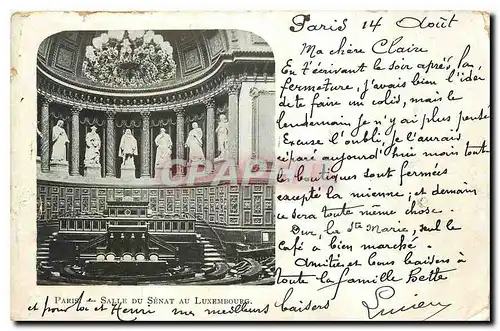 Paris 14 Août
Ma chère Claire
En t'écrivant le soir après la
fermeture, j'avais bien l'idée
de te faire un colis, mais le
lendemain je n'y ai plus pensé
Excuse l'oubli, je l'aurais
réparé aujourd'hui mais toute
les boutiques sont fermées
excepté la mienne; et demain
ce sera toute même chose.
Dur, la Ste Marie, seul le
café a bien marché.
Amitiés et bons baisers à
toute la famille Bette
Lucien
PARIS — SALLE DU SÉNAT AU LUXEMBOURG.
et pour toi et Henri mes meilleurs baisers
CPARAMA.COM